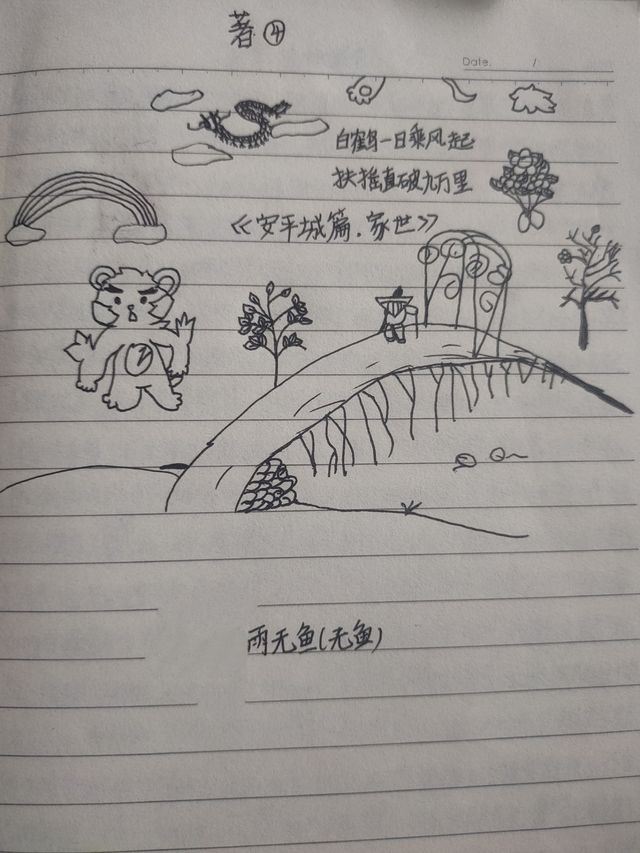 著④
Date. /
白鹤一日乘风起
扶摇直破九万里
《安平城篇.家世》
雨无鱼(无鱼)